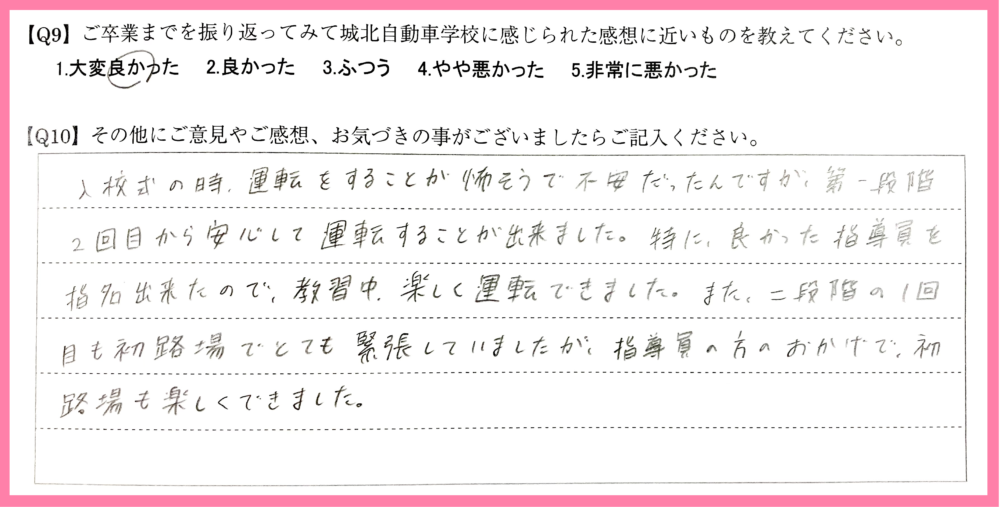 【Q9】ご卒業までを振り返ってみて城北自動車学校に感じられた感想に近いものを教えてください。
1.大変良かった 2.良かった 3.ふつう 4.やや悪かった 5.非常に悪かった
【Q10】その他にご意見やご感想、お気づきの事がございましたらご記入ください。
入校式の時、運転をすることが怖そうで不安だったんですが、第一段階
2回目から安心して運転することが出来ました。特に、良かった指導員を
指名出来たので、教習中、楽しく運転できました。また、二段階の1回
目も初路場でとても緊張していましたが、指導員の方のおかげで、初
路場も楽しくできました。